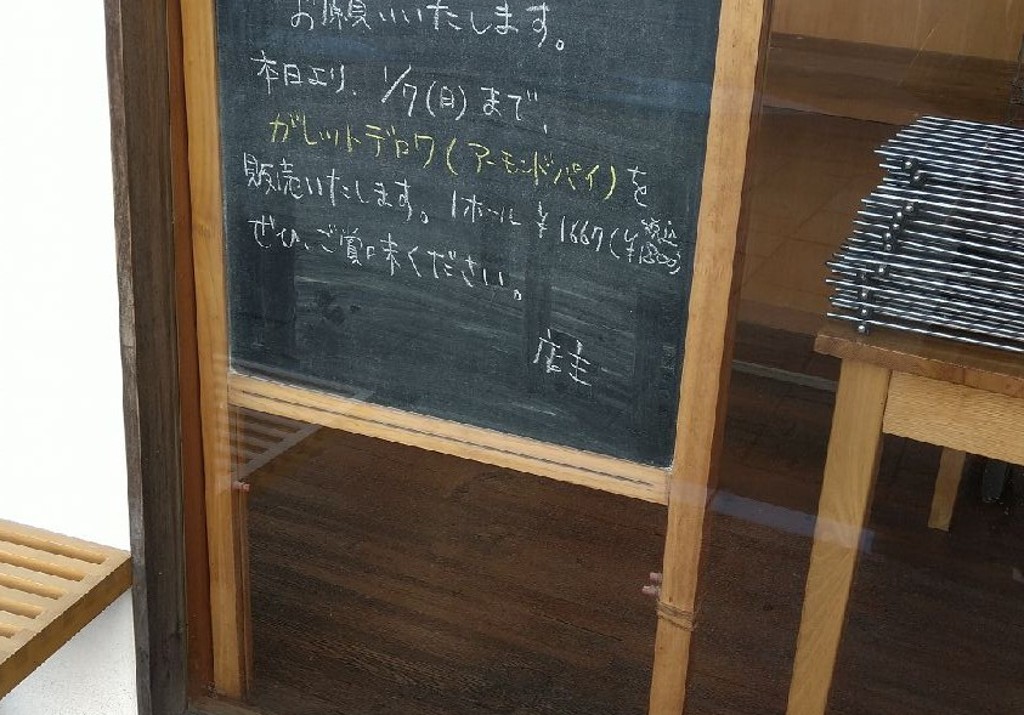 お願いいたします。
本日より、1/7(日)まで、
ガレットデロワ(アーモンドパイ)を
販売いたします。1ホール ¥1667(税込¥1800)
ぜひ、ご賞味ください。
店主